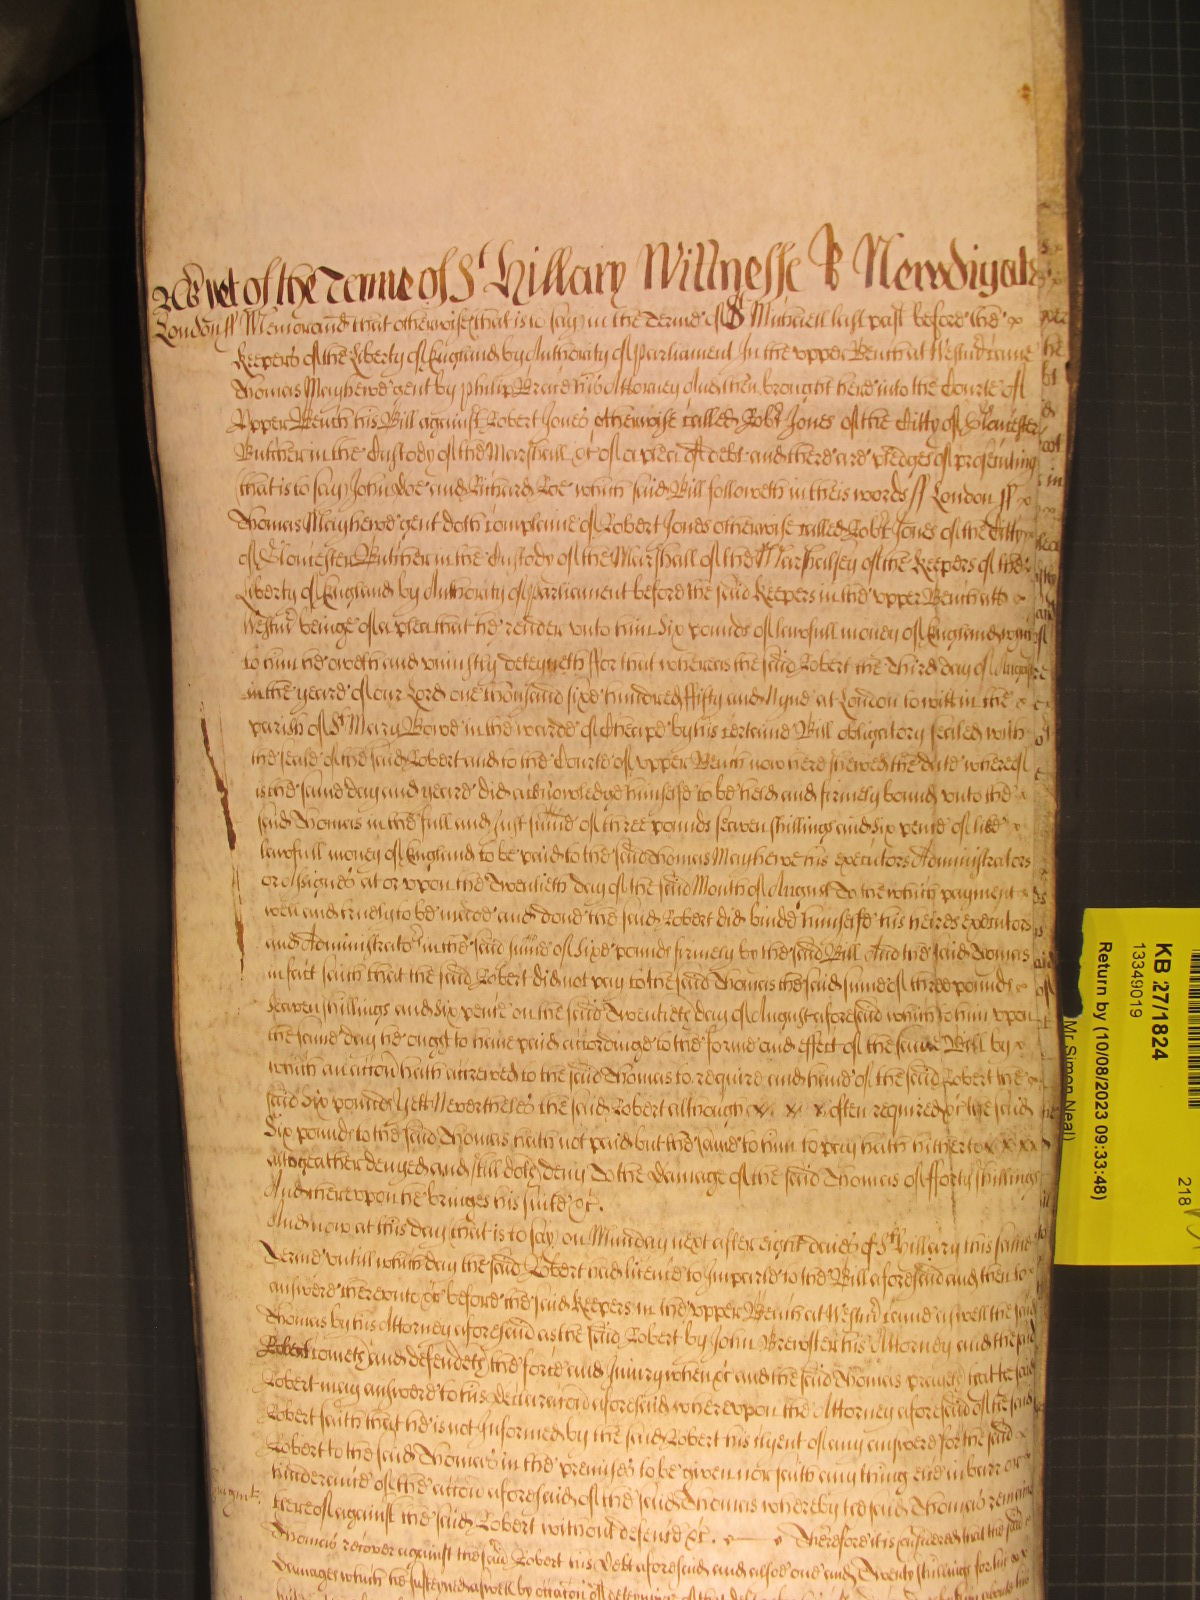 yet of the Terme of St Hillary Wittnesse R Newdigate
London ss Memorand that otherwise that is to say in the Terme of St Michaell last past before the
Keepers of the Liberty of England by Authority of Parliament In the upper Bench at Westm came
Thomas Mayhewe gent by Philip his Attorney And then brought here into the Courte of
Upper Bench his Bill against Robert Jones otherwise called Robt Jones of the Citty of Gloucester
Butcher in the Custody of the Marshall &c of a plea of debt and there are pledges of prosecuting
that is to say John Doe and Richard Roe which said Bill followeth in theis words ss London ss
Thomas Mayhewe gent doth complaine of Robert Jones otherwise called Robt Jones of the Citty
of Gloucester Butcher in the Custody of the Marshall of the Marshalsey of the Keepers of the
Liberty of England by Authority of Parliament before the said Keepers in the upper Bench att
Westmr beinge of a plea that he render unto him Six pounds of lawfull money of England which
to him he oweth and uniustly deteyneth For that whereas the said Robert the Third day of August
in the yeare of our Lord one thousand sixe hundred fifty and Nyne at London to witt in the
parish of St Mary Bowe in the warde of Cheape by his certaine Bill obligatory sealed with
the seale of the said Robert and to the Courte of upper Bench now here shewed the date whereof
is the same day and yeare did acknowledge himselfe to be held and firmely bound unto the
said Thomas in the full and Just summe of three pounds seaven shillings and six pence of like
lawfull money of England to be paid to the said Thomas Mayhewe his executors Administrators
or Assignes at or upon the Twentieth day of the said Month of August To the which payment
well and truely to be made and done the said Robert did binde himselfe his heires executors
and Administrators in the said summe of Sixe pounds firmely by the said Bill And the said Thomas
in fact saith that the said Robert did not pay to the said Thomas the said summe of three pounds
seaven shillings and six pence on the said Twentieth day of August aforesaid which to him upon
the same day he ought to have paid accordinge to the forme and effect of the same Bill by
which an accon hath accrewed to the said Thomas to require and have of the said Robert the
said Six pounds Yett Neverthelesse the said Robert although often required &c the said
Six pounds to the said Thomas hath not paid but the same to him to pay hath hitherto
altogeather denyed and still doth deny To the damage of the said Thomas of fforty shillings
And thereupon he bringes his suite &c.
And now at this day that is to say on Munday next after eight dayes of St Hillary this same
Terme untill which day the said Robert had licence to Imparle to the Bill aforesaid and then to
answere thereunto &c before the said Keepers in the upper Bench at Westm came aswell the said
Thomas by his Attorney aforesaid as the said Robert by John Brewster his Attorney and the said
Robert cometh and defendeth the force and Iniury when &c and the said Thomas prayeth that the said
Robert may answere to his Declaracon aforesaid whereupon the Attorney aforesaid of the said
Robert saith that he is not Informed by the said Robert his Clyent of any answere for the said
Robert to the said Thomas in the premisses to be given nor saith any thing else in barr or
hinderance of the accon aforesaid of the said Thomas whereby the said Thomas remaines
thereof against the said Robert without defence &c. Therefore it is considered that the said
Judgmt
Thomas recover against the said Robert his Debt aforesaid and alsoe one and Twenty shillings for his
damages which he susteyned aswell by occasion of deteyninge of that debt
KB 27/1824
13349019
Return by (10/08/2023 09:33:48)
Mr Simon Neal)
218